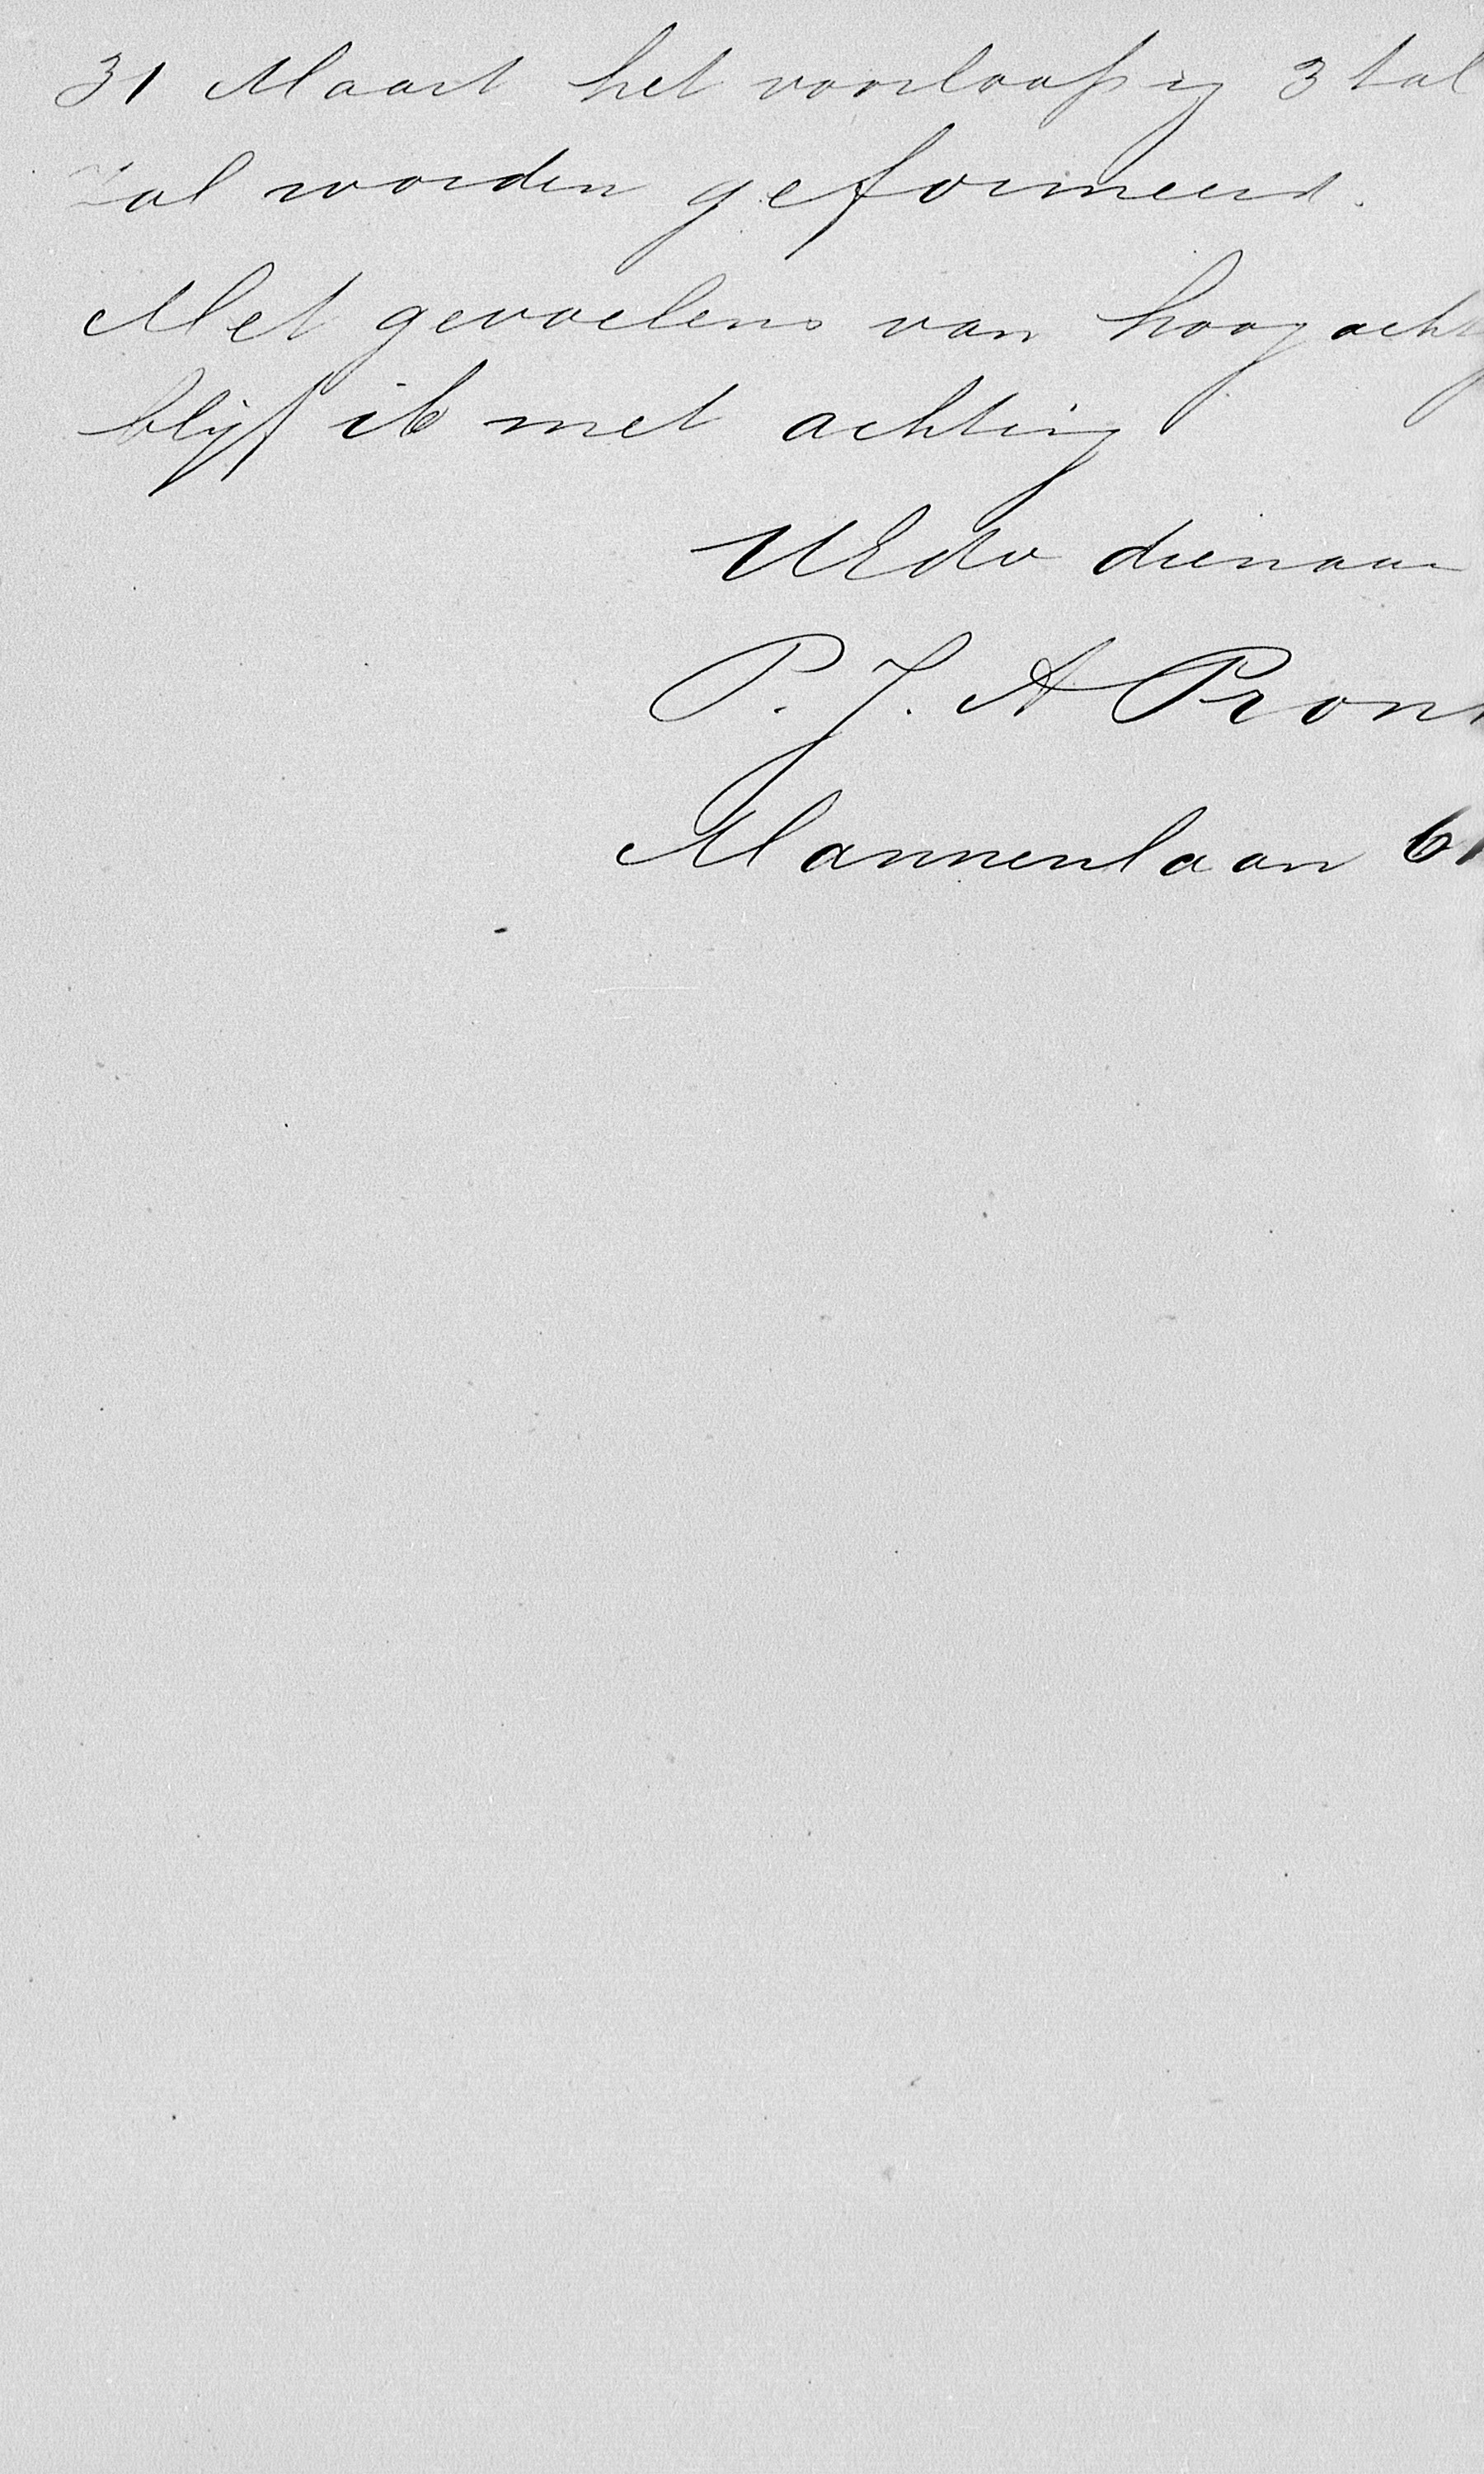 31 Maart het voorloopig 3 tal
zal worden geformeerd.
Met gevoelens van hoogacht
blijf ik met achting
UEdv dienaar
P. J. A Pron
Mannenlaan 61